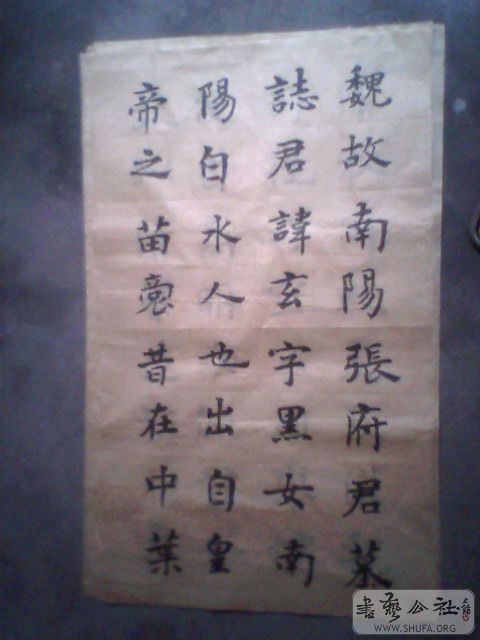 魏故南陽張府君墓
誌君諱玄字黑女南
陽白水人也出自皇
帝之苗裔昔在中葉
書藝公社
WWW.SHUFA.ORG